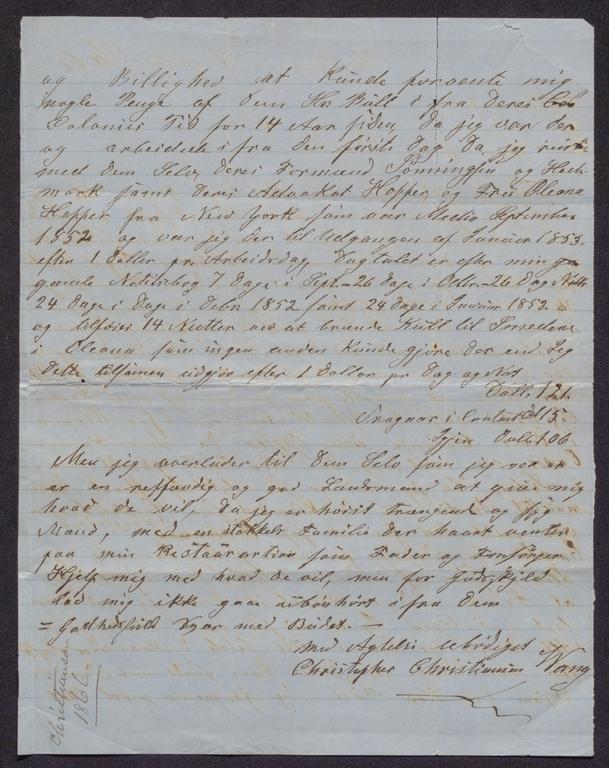 og Billighed at kunde forvente mig
nogle Penge af Dem Hr Bull i fra Deres
Colonies Tid for 14 Aar siden, da jeg var der
og arbeidede i fra den förste dag da jeg reiste
med Dem Selv, Deres Formænd Ponningen og Hed-
mark samt Deres Advokat Hopper og Fru Oleana
Hopper fra New York som var Medio September
1852 og var jeg der til Udgangen af Januar 1853.
efter 1 Dollar pr Arbeidsdag, Dagtalet er efter min
gamle Notitsbog 7 Dage i Sept - 26 Dage i Octbr - 26 Dag Novbr
24 Dage i Debr 1852 samt 24 Dage i Januar 1853 -
og tilföier 14 Netter ved at brænde Kull til Smedene
i Oleana som ingen anden kunde gjöre der end Jeg
Dette tilsamen udgjör efter 1 Dollar pr Dag og Nat
Doll, 121.
i Contant 15
Igjen Doll 106
Men jeg overlader til Dem Selv som jeg
er en retfærdig og god Landsmand at give mig
hvad de vil, da jeg er höist trængende og syg
Mand, med en stakkels Familie der haart venter
paa min Restaurartion som Fader og Forsörger
Hjelp mig med hvad De vil, men for Guds skyld
lad mig ikke gaae ubönhört i fra Dem
= Svar med Budet. -
med Agtelse ærbödigst
Christopher Christiansen Wang
Christiania
1866